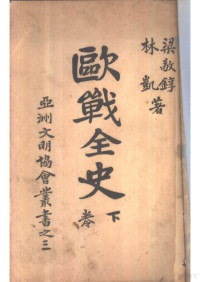 梁敬錞
林凱 著
歐戰全史
下卷
亞洲文明協會叢書之三